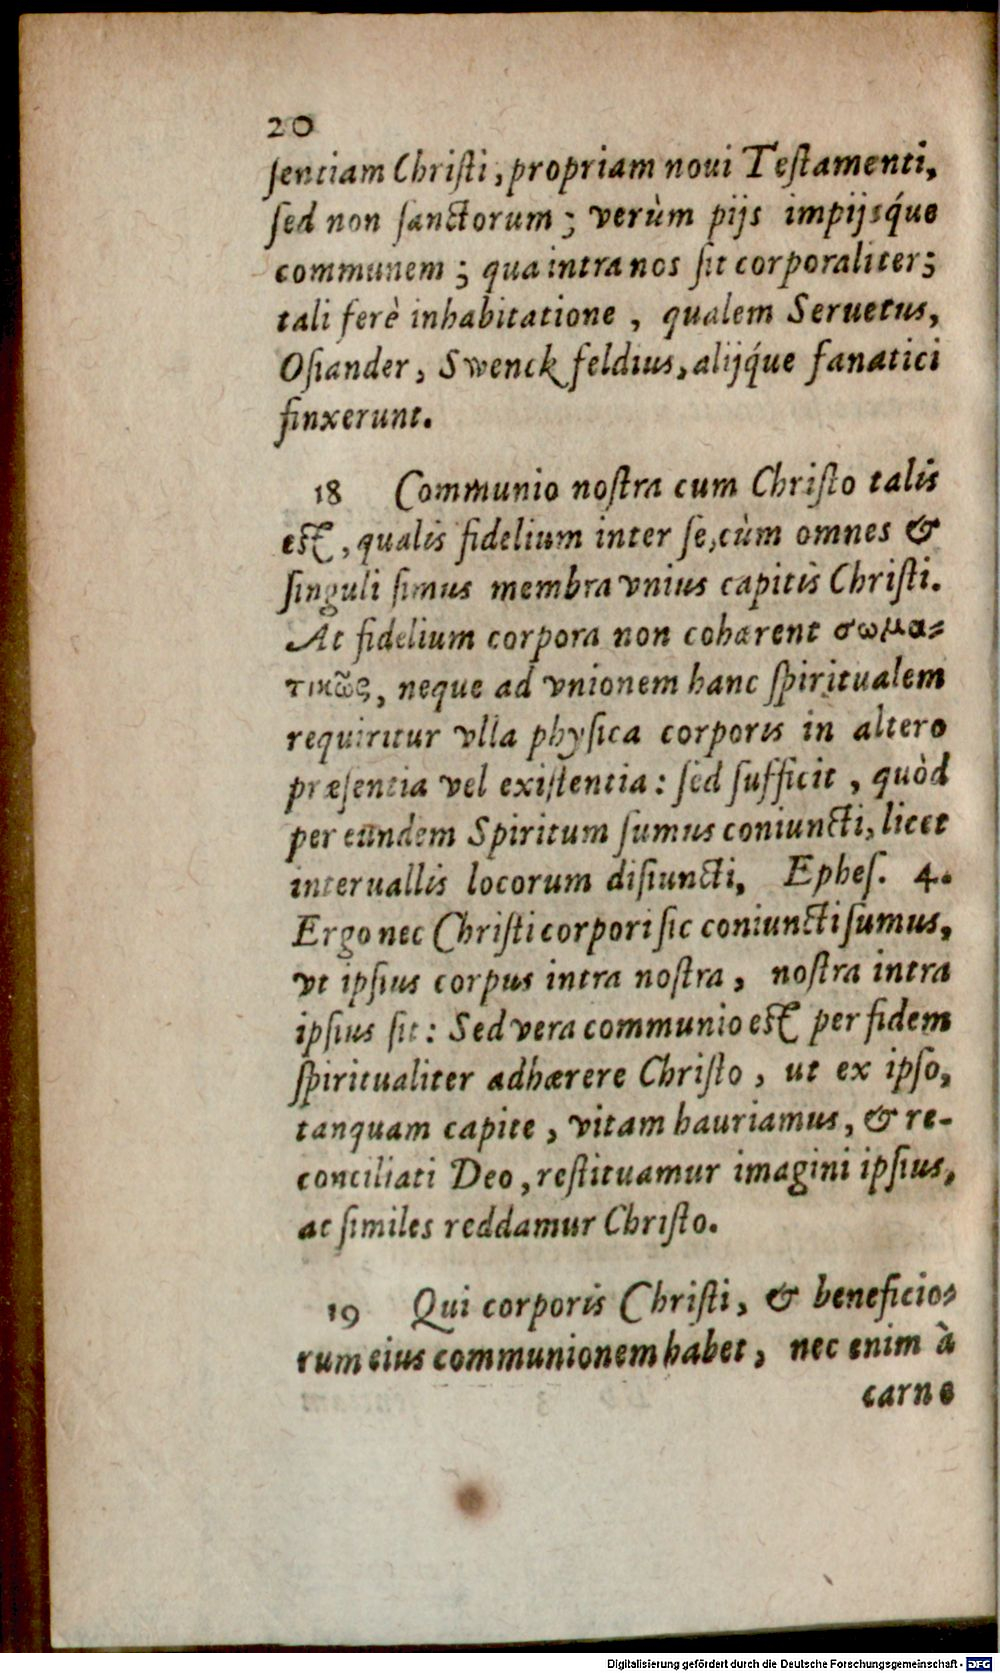 20
ſentiam Chriſti, propriam noui Teſtamenti,
ſed non ſanctorum; verùm pijs impijsq́ue
communem; qua intra nos ſit corporaliter;
tali ferè inhabitatione, qualem Seruetus,
Oſiander, Swenckfeldius, alijq́ue fanatici
finxerunt.
18 Communio noſtra cum Chriſto talis
eſt, qualis fidelium inter ſe, cùm omnes &
ſinguli ſimus membra vnius capitis Chriſti.
At fidelium corpora non cohærent σωμα-
τικῶς, neque ad vnionem hanc ſpiritualem
requiritur vlla phyſica corporis in altero
præſentia vel exiſtentia: ſed ſufficit, quòd
per eundem Spiritum ſumus coniuncti, licet
interuallis locorum diſiuncti, Epheſ. 4.
Ergo nec Chriſti corpori ſic coniuncti ſumus,
vt ipſius corpus intra noſtra, noſtra intra
ipſius ſit: Sed vera communio eſt per fidem
ſpiritualiter adhærere Chriſto, ut ex ipſo,
tanquam capite, vitam hauriamus, & re-
conciliati Deo, reſtituamur imagini ipſius,
ac ſimiles reddamur Chriſto.
19 Qui corporis Chriſti, & beneficio-
rum eius communionem habet, nec enim à
carne
Digitalisierung gefördert durch die Deutsche Forschungsgemeinschaft - DFG